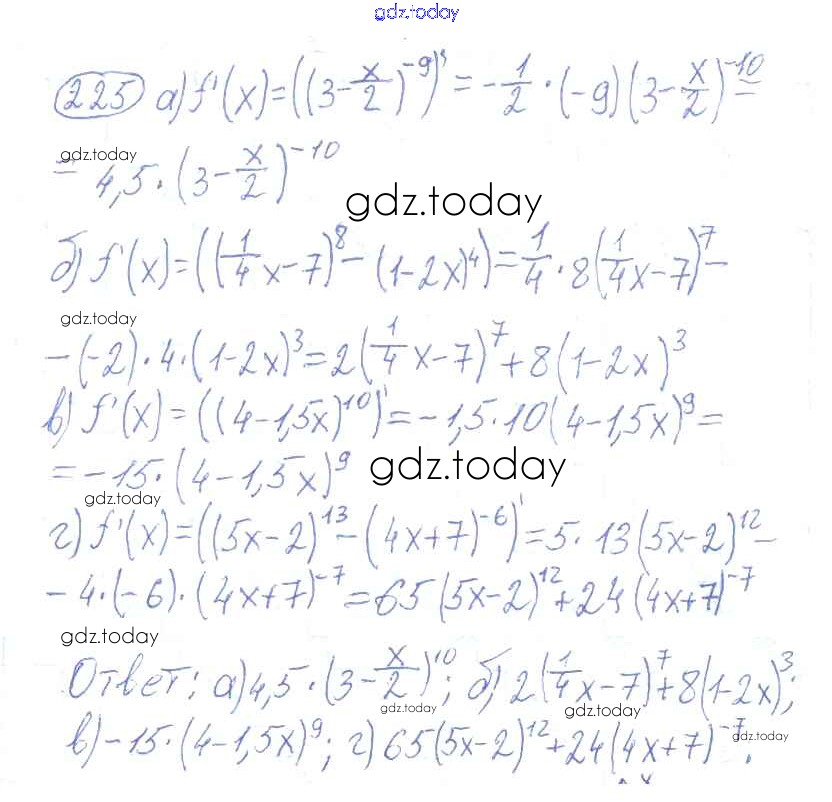 gdz.today
225 а) f'(x) = ((3 - x/2)^-9)' = -1/2 · (-9)(3 - x/2)^-10 =
gdz.today
= 4,5 · (3 - x/2)^-10
gdz.today
б) f'(x) = ((1/4 x - 7)^8 - (1 - 2x)^4)' = 1/4 · 8(1/4 x - 7)^7 -
gdz.today
- (-2) · 4 · (1 - 2x)^3 = 2(1/4 x - 7)^7 + 8(1 - 2x)^3
в) f'(x) = ((4 - 1,5x)^10)' = -1,5 · 10(4 - 1,5x)^9 =
= -15 · (4 - 1,5x)^9 gdz.today
gdz.today
г) f'(x) = ((5x - 2)^13 - (4x + 7)^-6)' = 5 · 13(5x - 2)^12 -
- 4 · (-6) · (4x + 7)^-7 = 65(5x - 2)^12 + 24(4x + 7)^-7
gdz.today
Ответ: а) 4,5 · (3 - x/2)^10; б) 2(1/4 x - 7)^7 + 8(1 - 2x)^3;
gdz.today gdz.today
в) -15 · (4 - 1,5x)^9; г) 65(5x - 2)^12 + 24(4x + 7)^-7.
gdz.today